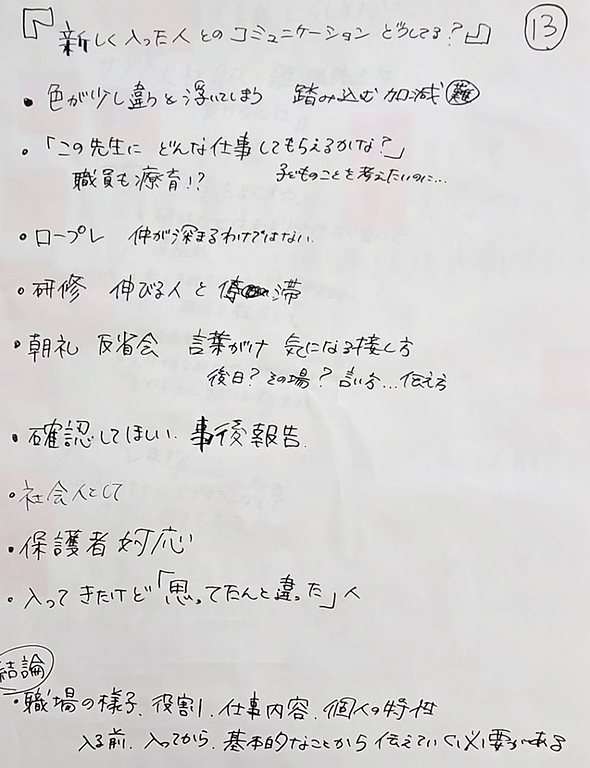 『新しく入った人とのコミュニケーションどうしてる?』 ⑬
・色が少し違うと浮いてしまう 踏み込む加減 難
・「この先生に どんな仕事してもらえるかな?」
職員も療育!? 子どものことを考えたいのに…
・ロープレ 仲が深まるわけではない.
・研修 伸びる人と停滞
・朝礼 反省会 言葉がけ 気になる接し方
後日? その場? 言い方…伝え方
・確認してほしい. 事後報告.
・社会人として
・保護者対応
・入ってきたけど「思ってたんと違った」人
結論
・職場の様子、役割、仕事内容、個人の特性
入る前、入ってから、基本的なことから伝えていく必要がある